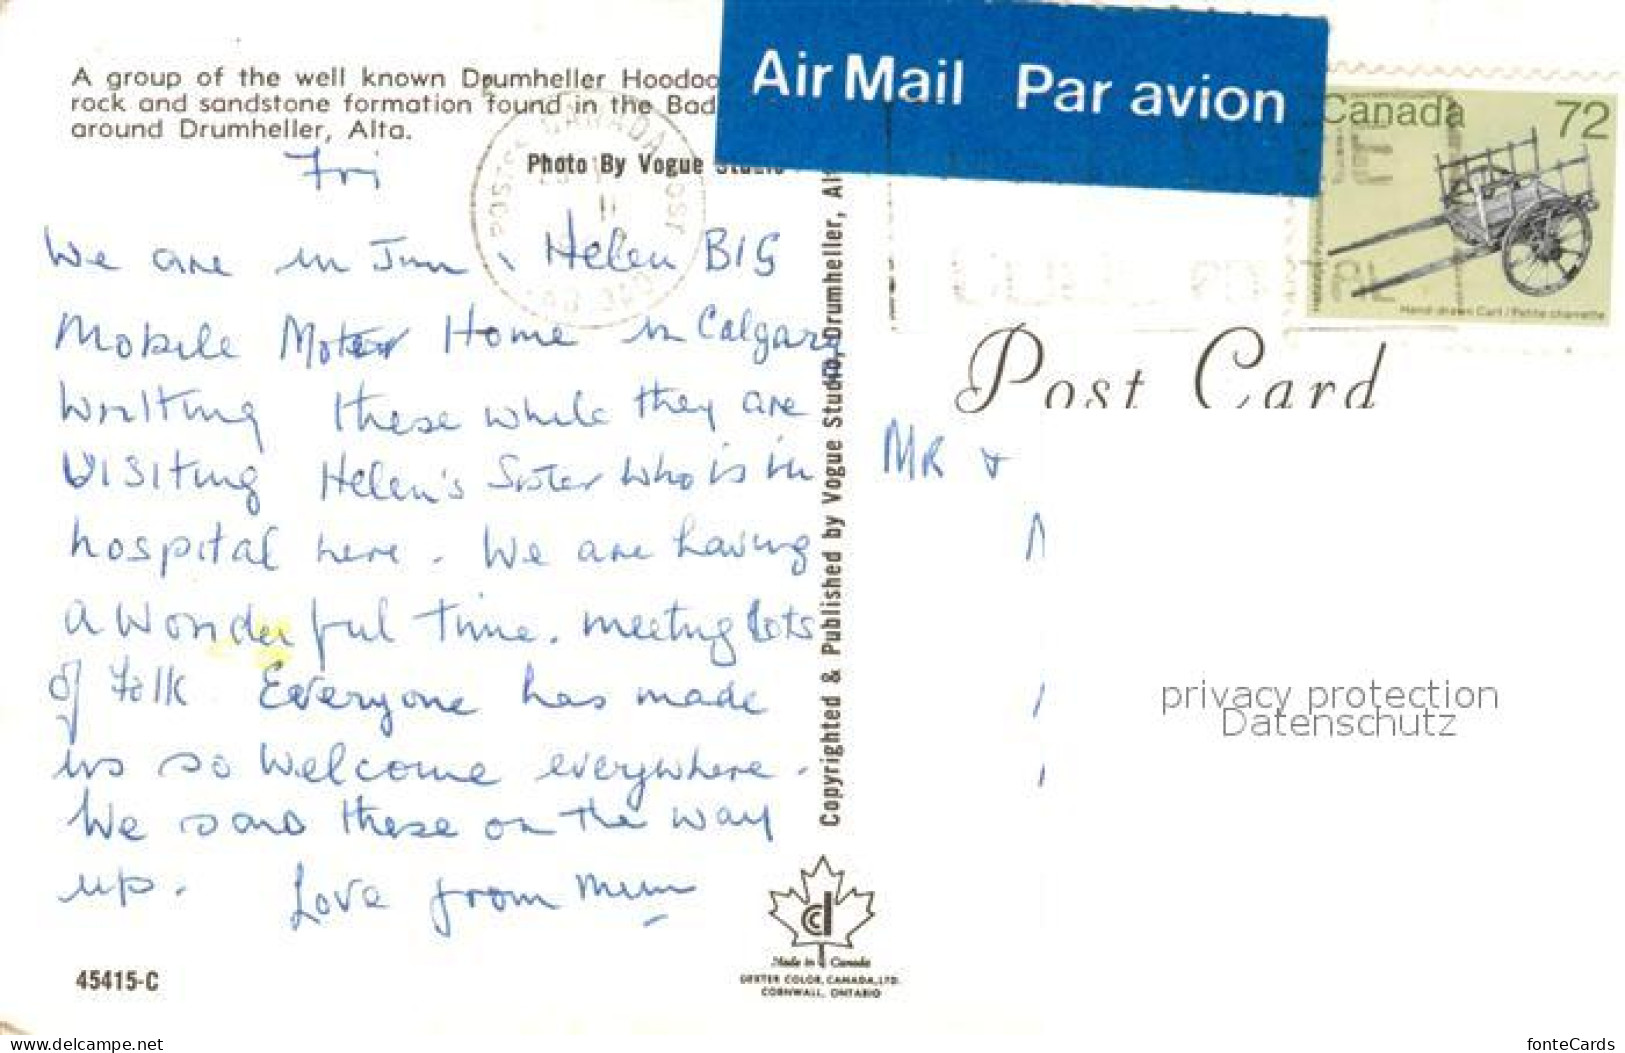 A group of the well known Drumheller Hoodoo
rock and sandstone formation found in the Bad
around Drumheller, Alta.
Photo By Vogue Studio
Air Mail Par avion
Canada 72
Hand-drawn Cart / Petite charrette
CANADA
Fri
We are in Jim & Helen BIG
Mobile Motor Home in Calgary
writting these while they are
Visiting Helen's Sister who is in
hospital here. We are having
a wonderful time. meeting lots
of Folk. Everyone has made
us so welcome everywhere.
We saw these on the way
up. Love from Mum
Copyrighted & Published by Vogue Studio, Drumheller, Alt
Post Card
MR &
privacy protection
Datenschutz
Made in Canada
DEXTER COLOR, CANADA, LTD.
CORNWALL, ONTARIO
45415-C
www.delcampe.net
fonteCards